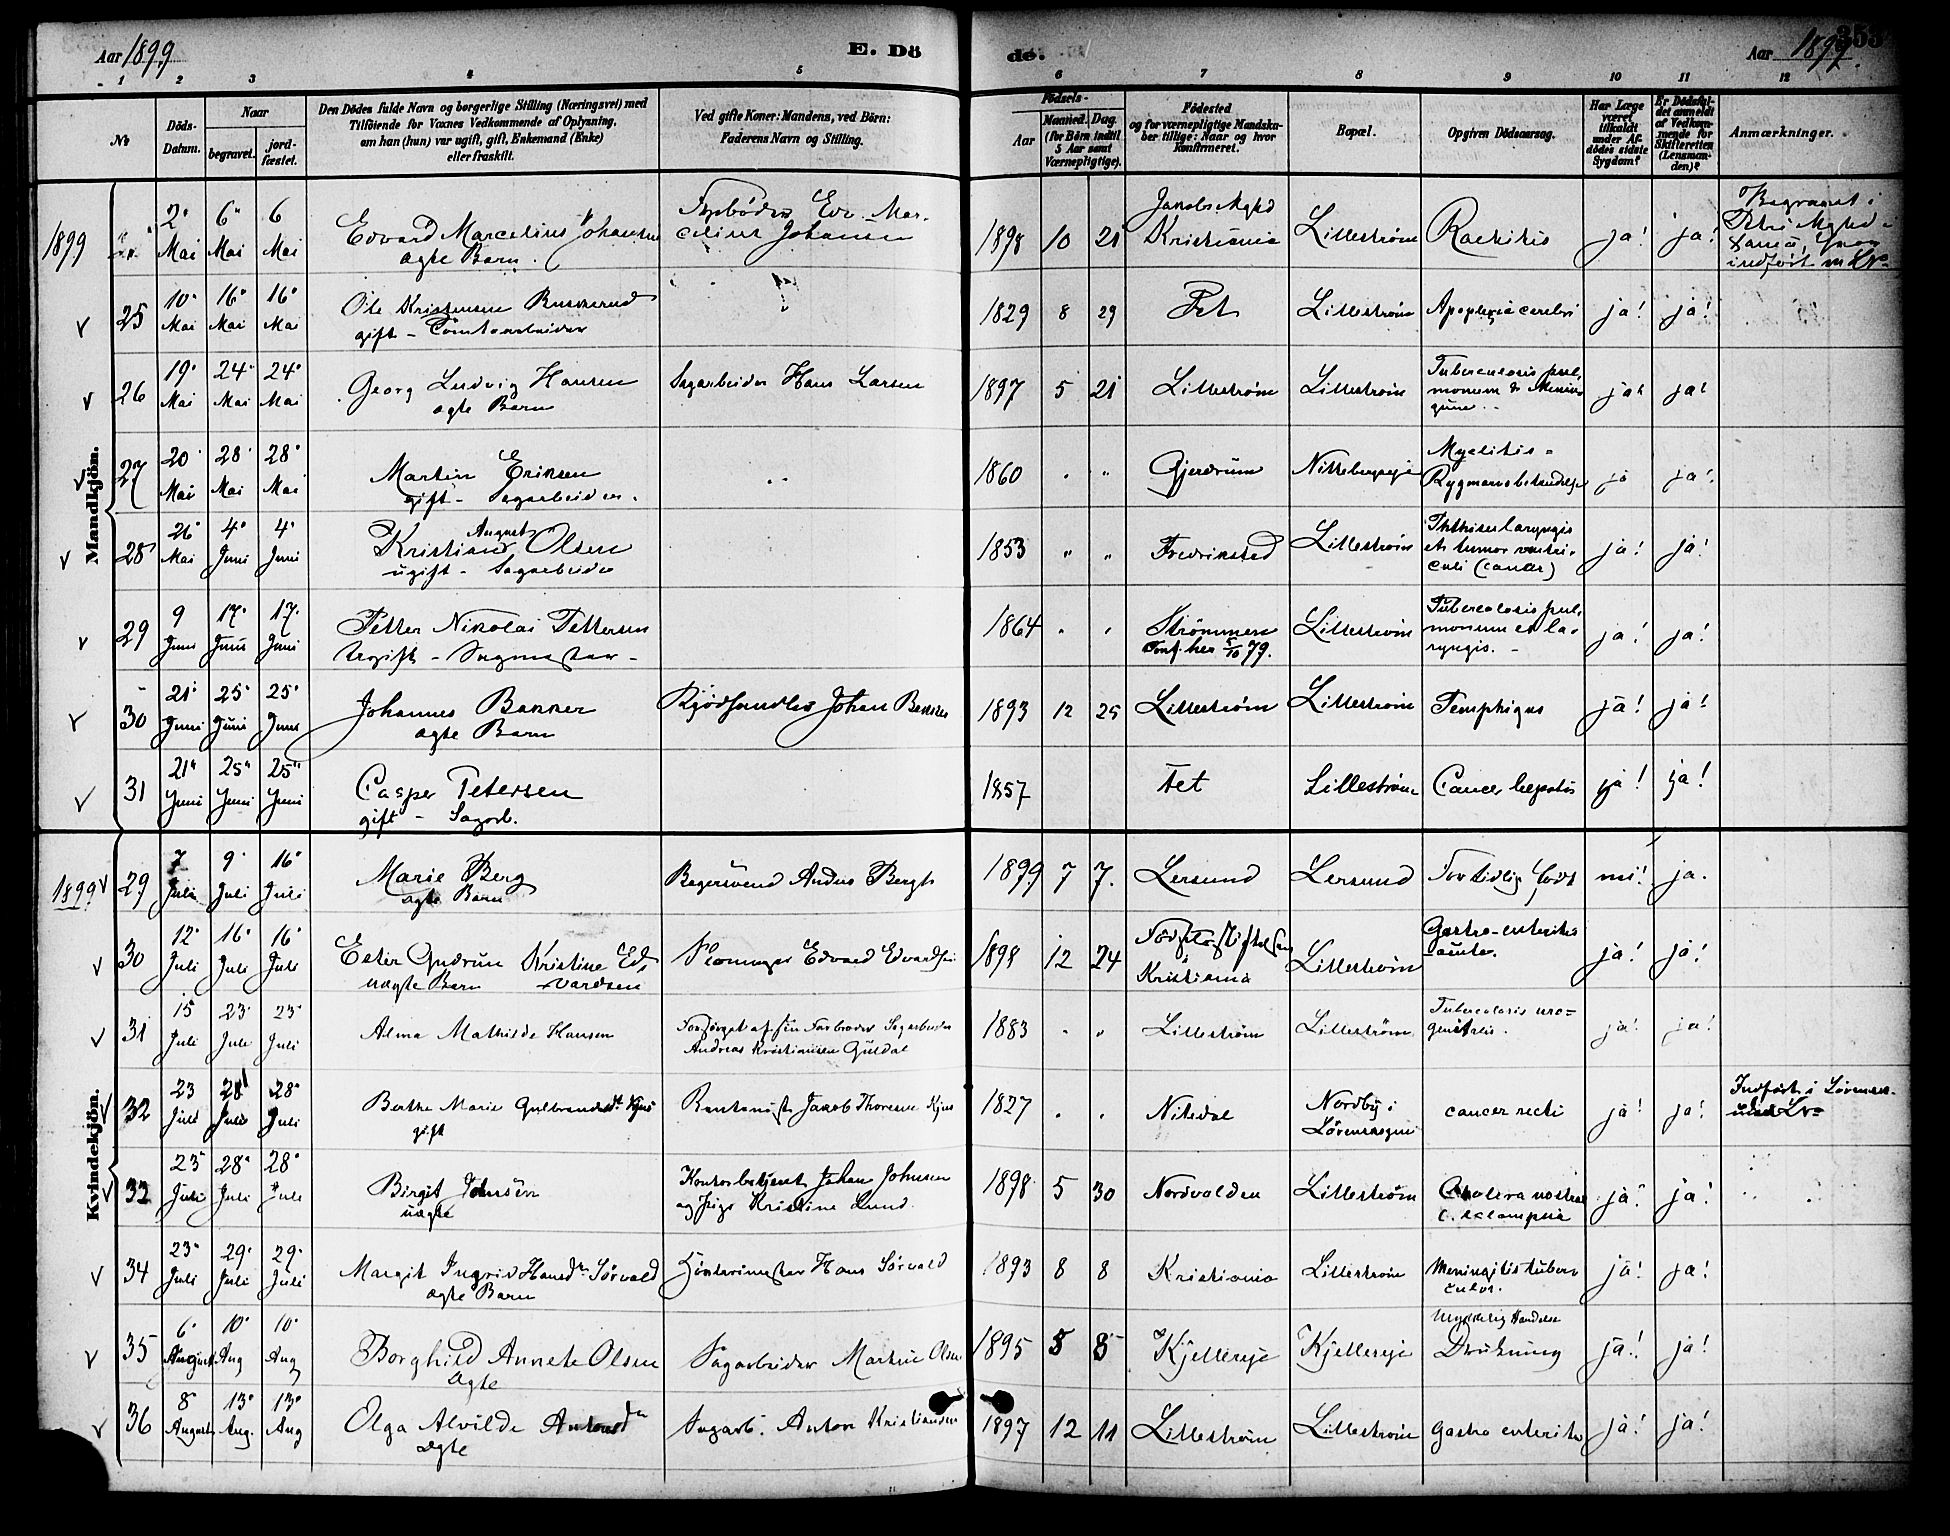 Aar 1899
E. Dö
de.
Aar 1899.
353
1 2 3 4 5 6 7 8 9 10 11 12
No
Döds-Datum.
Naar
begravet.
jord-fæstet.
Den Dödes fulde Navn og borgerlige Stilling (Næringsvei) med
Tilföiende for Voxnes Vedkommende af Oplysning,
om han (hun) var ugift, gift, Enkemand (Enke)
eller fraskilt.
Ved gifte Koner: Mandens, ved Börn:
Faderens Navn og Stilling.
Födsels-
Aar
Maaned. Dag.
(for Börn indtil
5 Aar samt
Værnepligtige).
Födested
og for værnepligtige Mandska-
ber tillige: Naar og hvor
konfirmeret.
Bopæl.
Opgiven Dödsaarsag.
Har Læge
været
tilkaldt
under Af-
dödes sidste
Sygdom?
Er Dödsfal-
det anmeldt
af Vedkom-
mende for
Skifteretten
(Lensman-
den)?
Anmærkninger.
Mandkjön.
1899
2 Mai 6 Mai 6 Mai
Edvard Marcelius Johansen
ægte Barn.
Edv. Mar-
celius Johansen
1898 10 21
Jakobs Mghd
Kristiania
Lillestrøm
Rachitis
ja! ja!
Begravet i
Petri Mghd i
indført u No
25
10 Mai 16 Mai 16 Mai
Ole Kristensen Buskerud
gift - Tomtearbeider
1829 8 29
Fet
Lillestrøm
Apoplexia cerebri
ja! ja!
26
19 Mai 24 Mai 24 Mai
Georg Ludvig Hansen
ægte Barn
Sagarbeider Hans Larsen
1897 5 21
Lillestrøm
Lillestrøm
Tuberculosis pul-
monum & Menin
gum
ja! ja!
27
20 Mai 28 Mai 28 Mai
Martin Eriksen
gift - Sagarbeider.
1860
Gjerdrum
Nittebergseje
Myelitis -
Rygmarvsbetændelse
ja ja!
28
26 Mai 4 Juni 4 Juni
August
Kristian Olsen
ugift - Sagarbeider
1853 " "
Fredriksted
Lillestrøm
Phthisis laryngis
et tumor ventri-
culi (cancer)
ja! ja!
29
9 Juni 17 Juni 17 Juni
Petter Nikolai Pettersen
Ugift - Sagmester -
1864
Strømmen
Conf. her 5/10 79.
Lillestrøm
Tuberculosis pul-
monum et la-
ryngis. -
ja! ja!
30
21 Juni 25 Juni 25 Juni
Johannes Bakker
ægte Barn
Kjødhandler Johan Bakker
1893 12 25
Lillestrøm
Lillestrøm
Pemphigus
ja! ja!
31
21 Juni 25 Juni 25 Juni
Casper Petersen
gift - Sagarb.
1857
Fet
Lillestrøm
Cancer hepatis
ja! ja!
Kvindekjön.
1899
29
7 Juli 9 Juli 16 Juli
Marie Berg
ægte Barn
Bagersvend Anders Bergh
1899 7 7.
Lersund
Lersund
For tidlig født
nei! ja.
30
12 Juli 16 Juli 16 Juli
Ester Gudrun Kristine Ed-
uægte Barn vardsen
Edvard Edvardsen
1898 12 24
Fødselsstiftelsen
Kristiania
Lillestrøm
Gastro-enteritis
acuta.
ja! ja!
31
15 Juli 23 Juli 23 Juli
Alma Mathilde Hansen
Forsørget af sin Farbroder Sagarbeider
Andreas Kristiansen Guldal
1883 . "
Lillestrøm
Lillestrøm
Tuberculosis uro-
genitalis.
ja! ja!
32
23 Juli 28 Juli 28 Juli
Berthe Marie Gulbrandsdt. Kjus
gift
Jakob Thoresen Kjus
1827
Nitedal
Nordby i
Lørenskogen
cancer recti
ja! ja!
Indført i Lørensk.
uden No
33
23 Juli 28 Juli 28 Juli
Birgit Johnsen
uægte
Kontorbetjent Johan Johnsen
og Pige Kristine Lund.
1898 5 30
Nordvolden
Lillestrøm
Cholera nostras
c. eclampsia
ja! ja!
34
23 Juli 29 Juli 29 Juli
Margit Ingrid Hansdtr Sørvald
ægte Barn
Hans Sørvald
1893 8 8
Kristiania
Lillestrøm
Meningitis tuber-
culos.
ja! ja!
35
6 August 10 Aug 10 Aug
Borghild Annete Olsen
Ægte
Sagarbeider Martin Olsen
1895 5 5
Kjellereje
Kjellereje
Ulykkelig Hændelse
Drukning
ja! ja!
36
8 August 13 Aug. 13 Aug
Olga Alvilde Antonsdtr
Ægte
Sagarb. Anton Kristiansen
1897 12 11
Lillestrøm
Lillestrøm
Gastro enteritis
ja! ja!